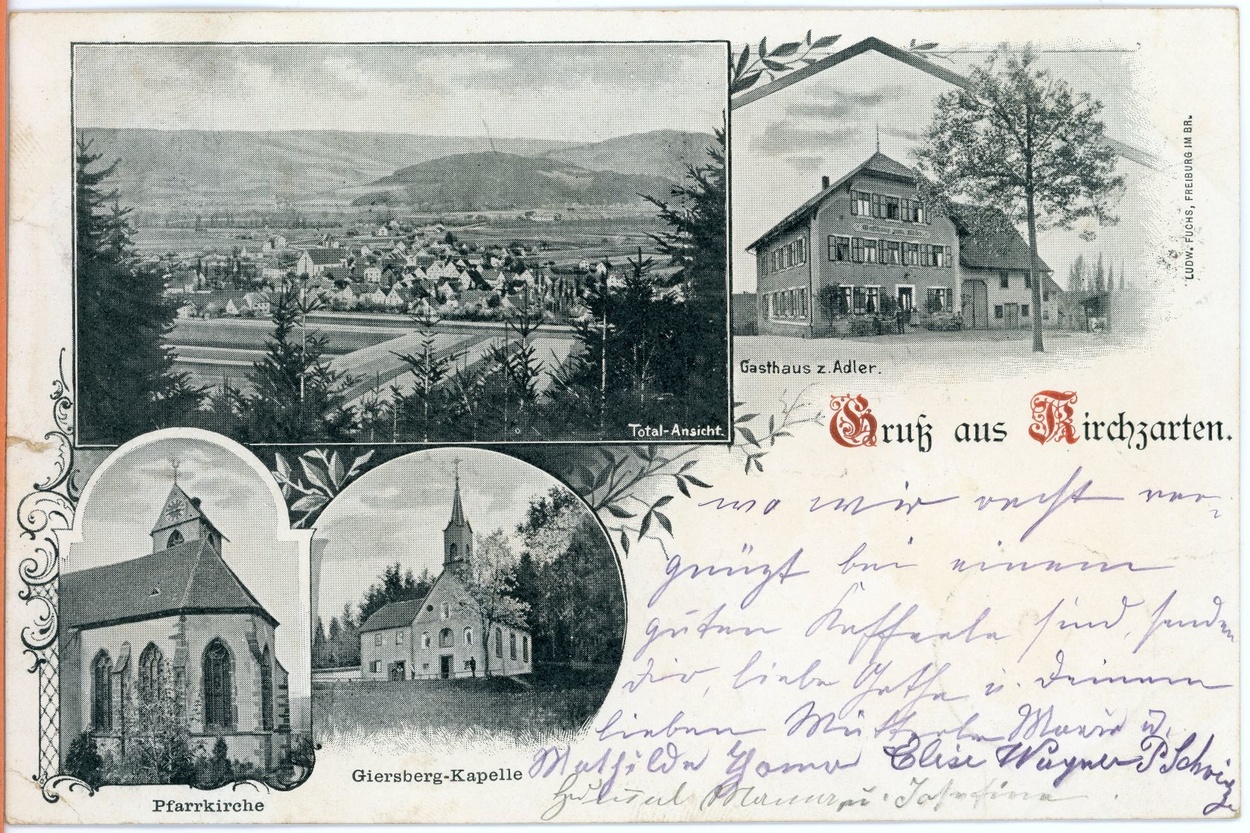 Gasthaus z. Adler.
LUDW. FUCHS, FREIBURG IM BR.
Total-Ansicht.
Gruß aus Kirchzarten.
wo wir recht ver-
gnügt bei einem
guten Kaffeele sind, senden
dir, liebe u. Deinem
lieben Mütterle Marie u.
Mathilde Elise Wagner P.
Mama u. Josefine
Giersberg-Kapelle
Pfarrkirche